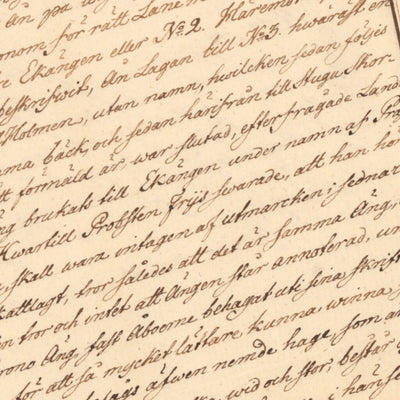 än på
onom, för rätt Lane m
Ekängen eller No 2. Häremot
beskrifwit, än Lagan till No 3. hwaräst en
Holmen, utan namn, hwilcken sedan föijes
ma bäck, och sedan härifrån till Stuga Skor-
tt förmäld är war slutad, efterfrågade Land
ng brukats till Ekängen under namn af Prå
Kwartid Probsten Frijs swarade, att han hör
, skall wara intagen af utmarcken i sednar
kattlagt, tror således att det är samma Äng,
n tror och intet att Ängen står annoterad, un
rono Äng, fast Åboerne behagat uti sina skrift
för att så mycket lättare kunna winna
lags äfwen nemde hage, som an
, wid och stor, består
i han se